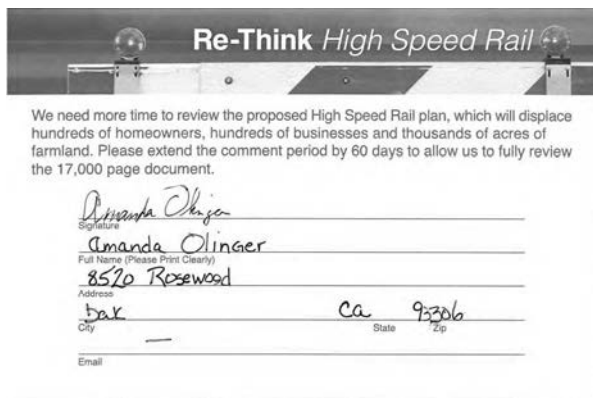 Re-Think High Speed Rail
We need more time to review the proposed High Speed Rail plan, which will displace
hundreds of homeowners, hundreds of businesses and thousands of acres of
farmland. Please extend the comment period by 60 days to allow us to fully review
the 17,000 page document.
Amanda Olinger
Signature
Amanda Olinger
Full Name (Please Print Clearly)
8520 Rosewood
Address
bak ca 93306
City State Zip
—
Email